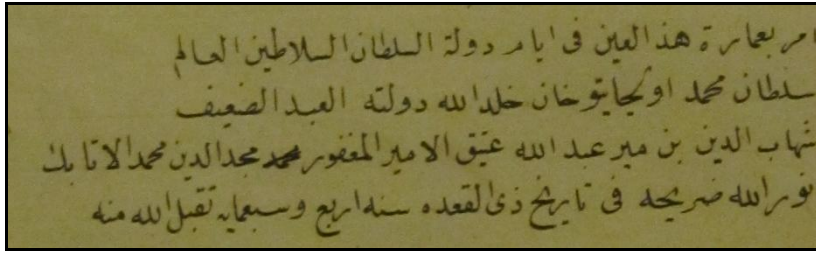 امر بعمارة هذا العين فى ايام دولة السلطان السلاطين العالم
سلطان محمد اولجايتو خان خلد الله دولته العبد الضعيف
شهاب الدين بن مير عبد الله عتيق الامير المغفور مجد الدين محمد الاتابك
نور الله ضريحه فى تاريخ ذى القعده سنه اربع وسبعمايه تقبل الله منه